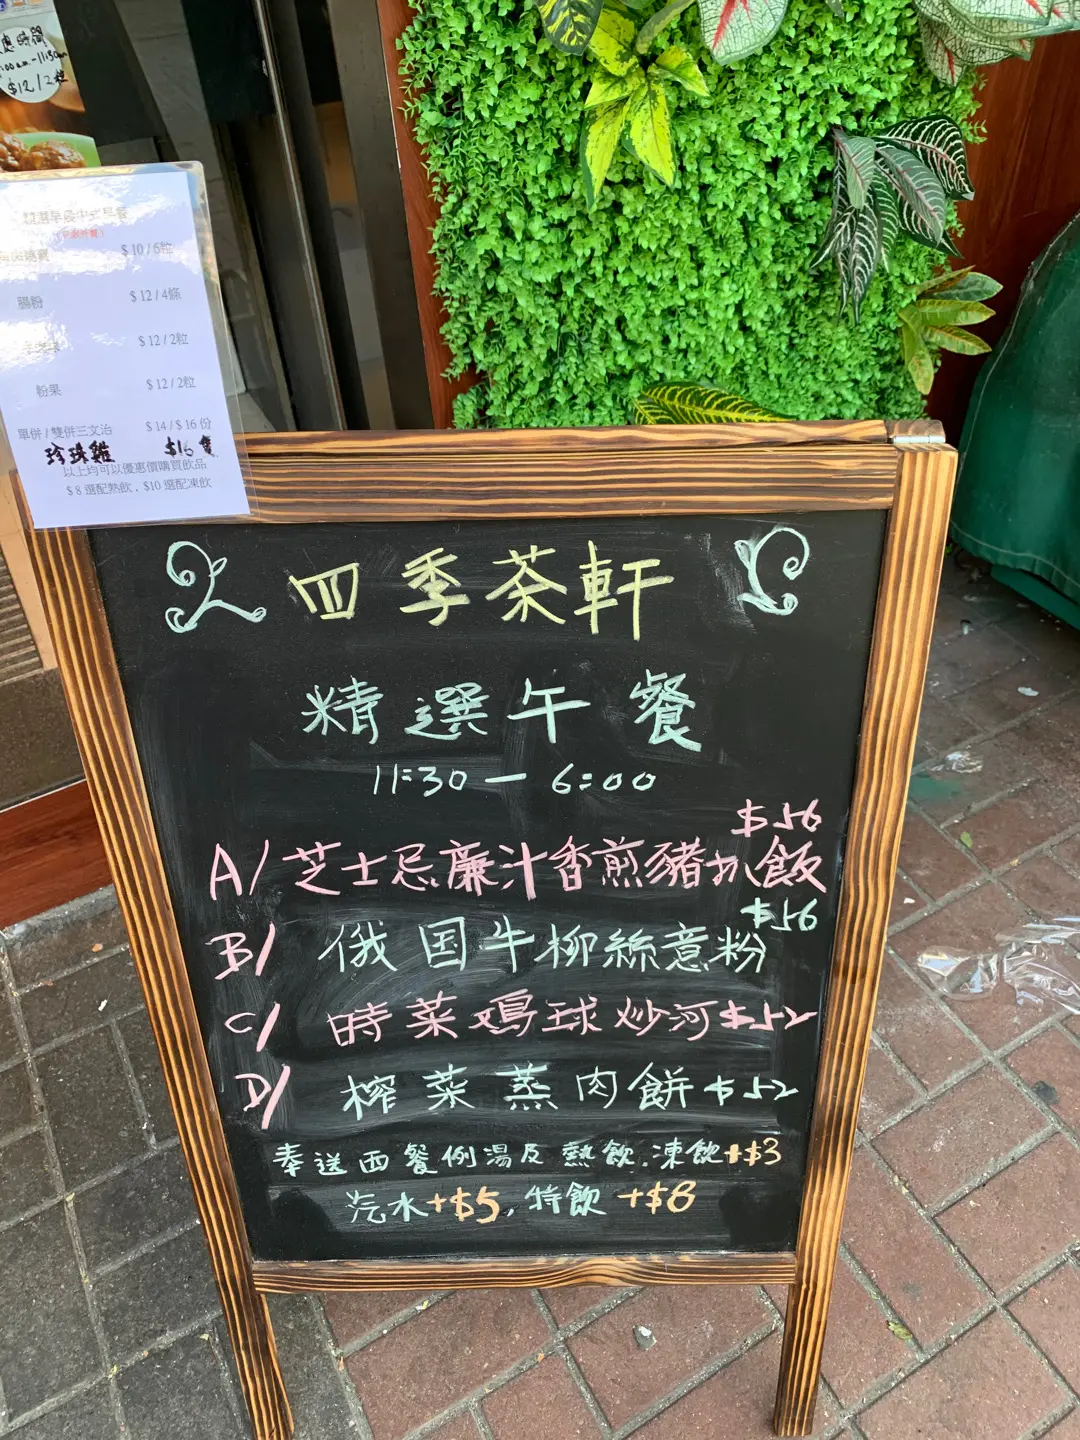 $12/2粒
$10/6粒
腸粉 $12/4條
$12/2粒
粉果 $12/2粒
單併/雙併三文治 $14/$16份
珍珠雞 $16隻
以上均可以優惠價購買飲品
$8選配熱飲，$10選配凍飲
四季茶軒
精選午餐
11:30 — 6:00
$56
A/ 芝士忌廉汁香煎豬扒飯
$56
B/ 俄国牛柳絲意粉
C/ 時菜鸡球炒河 $52
D/ 榨菜蒸肉餅 $52
奉送西餐例湯及熱飲.凍飲+$3
汽水+$5, 特飲 +$8